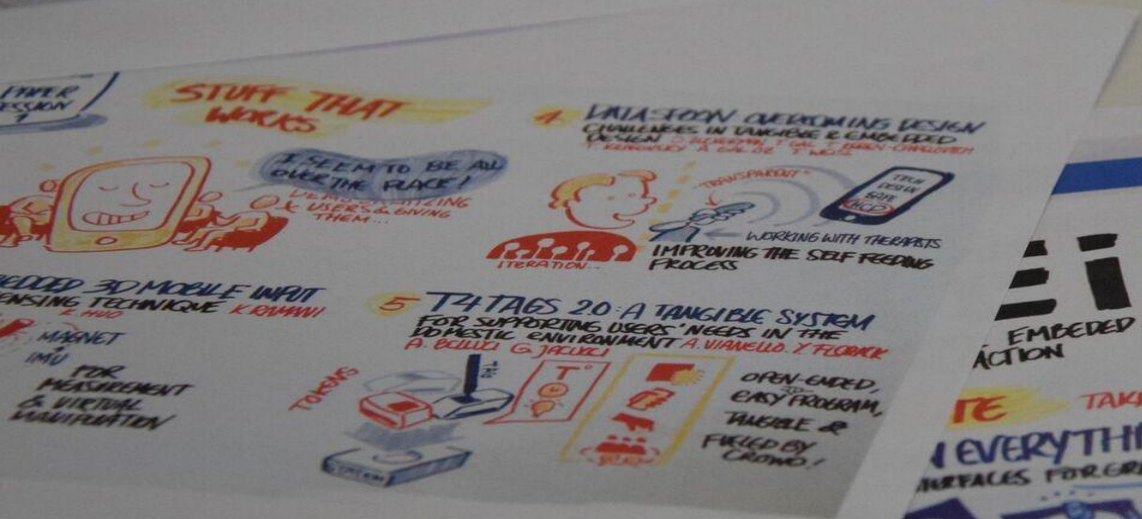 PAPER
SESSION
STUFF THAT
WORKS
I SEEM TO BE ALL
OVER THE PLACE!
USERS & GIVING
THEM...
1 DATASPOON OVERCOMING DESIGN
CHALLENGES IN TANGIBLE & EMBEDDED
DESIGN
"TRANSPARENT"
TECH
DESIGN
WORKING WITH THERAPISTS
ITERATION...
IMPROVING THE SELF FEEDING
PROCESS
EDDED 3D MOBILE INPUT
ENSING TECHNIQUE K. RAMANI
K. HUO
MAGNET
IMU
FOR
MEASUREMENT
& VIRTUAL
MANIPULATION
5 T4TAGS 2.0: A TANGIBLE SYSTEM
FOR SUPPORTING USERS' NEEDS IN THE
DOMESTIC ENVIRONMENT A. VIANELLO. Y FLORACK
A. BELLUCCI G. JACUCCI
TOKENS
TAG
T°
OPEN-ENDED,
EASY PROGRAM,
TANGIBLE &
FUELED BY
CROWD!
Ei
EMBEDED
ACTION
TE TAK
N EVERYTHI
ERFACES FOR